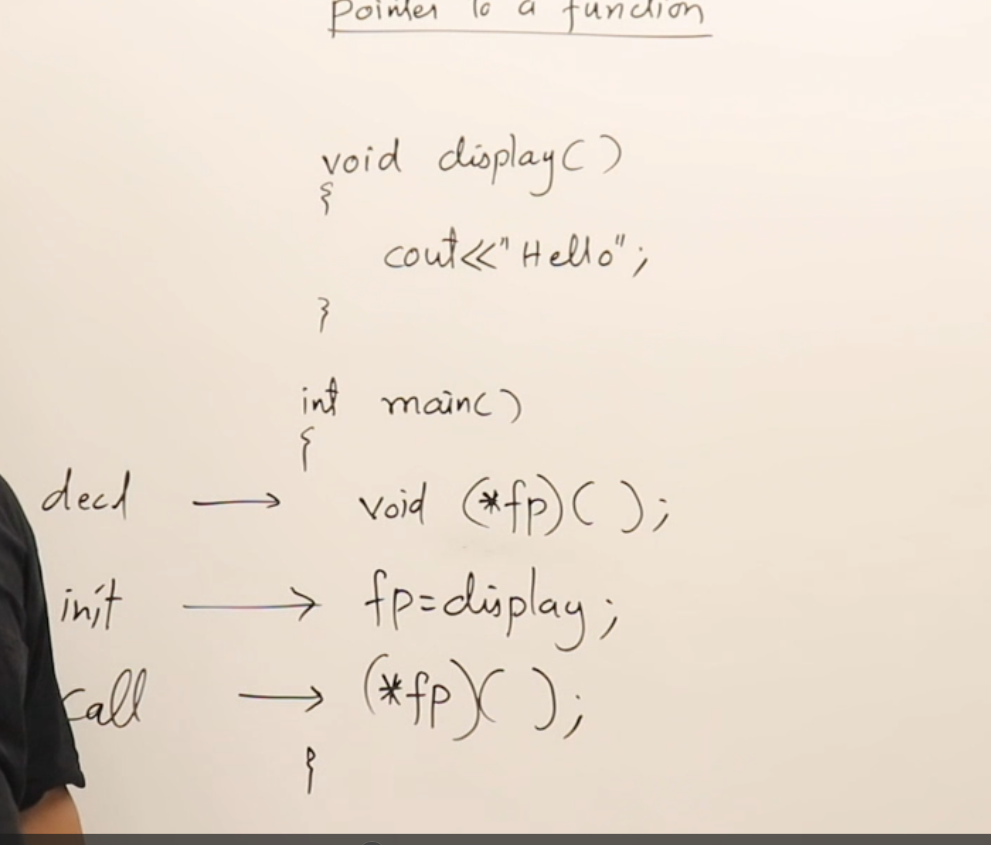 Pointer to a function
void display()
{
cout<<"Hello";
}
int main()
{
decl → void (*fp)( );
init → fp=display;
call → (*fp)( );
}